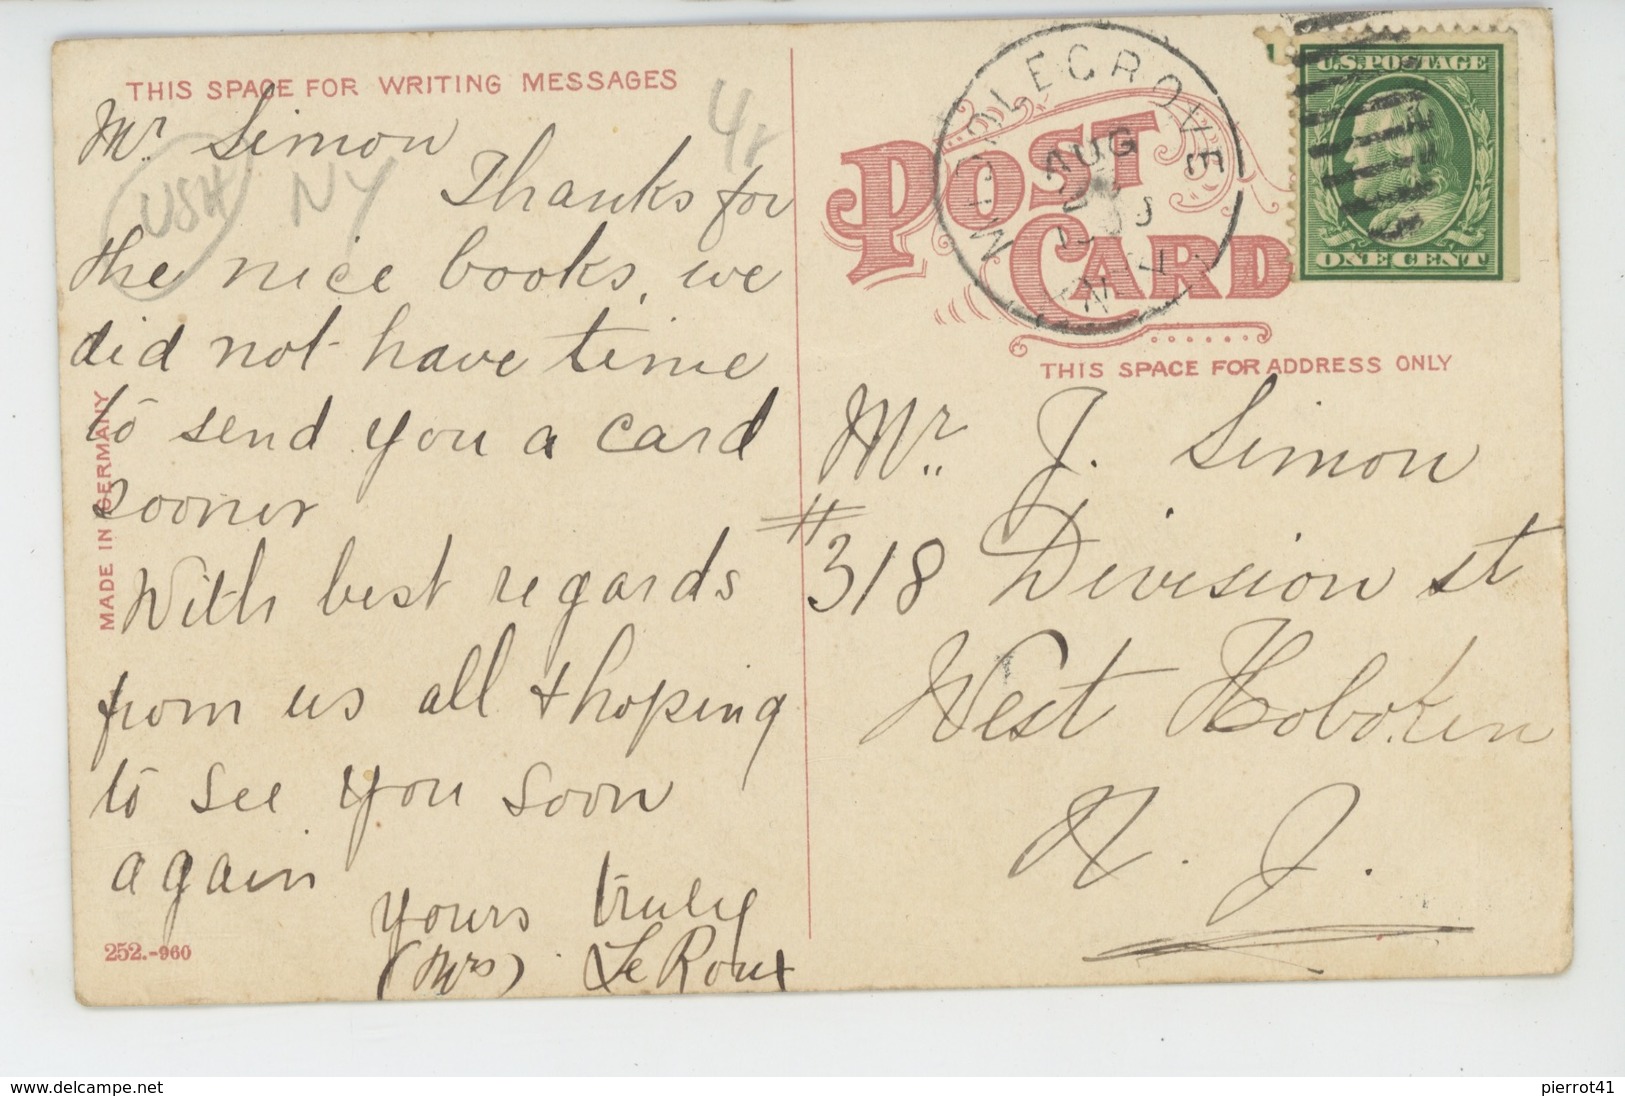 THIS SPACE FOR WRITING MESSAGES
Mr. Simon
Thanks for
the nice books, we
did not have time
to send you a card
sooner
With best regards
from us all & hoping
to see you soon
again
yours truly
(Mrs) LeRoux
252.-960
MADE IN GERMANY
USA
NY
MIDDLEGROVE
AUG
N.Y.
U.S. POSTAGE
ONE CENT
POST
CARD
THIS SPACE FOR ADDRESS ONLY
Mr. J. Simon
#318 Division st
West Hoboken
N. J.
www.delcampe.net
pierrot41